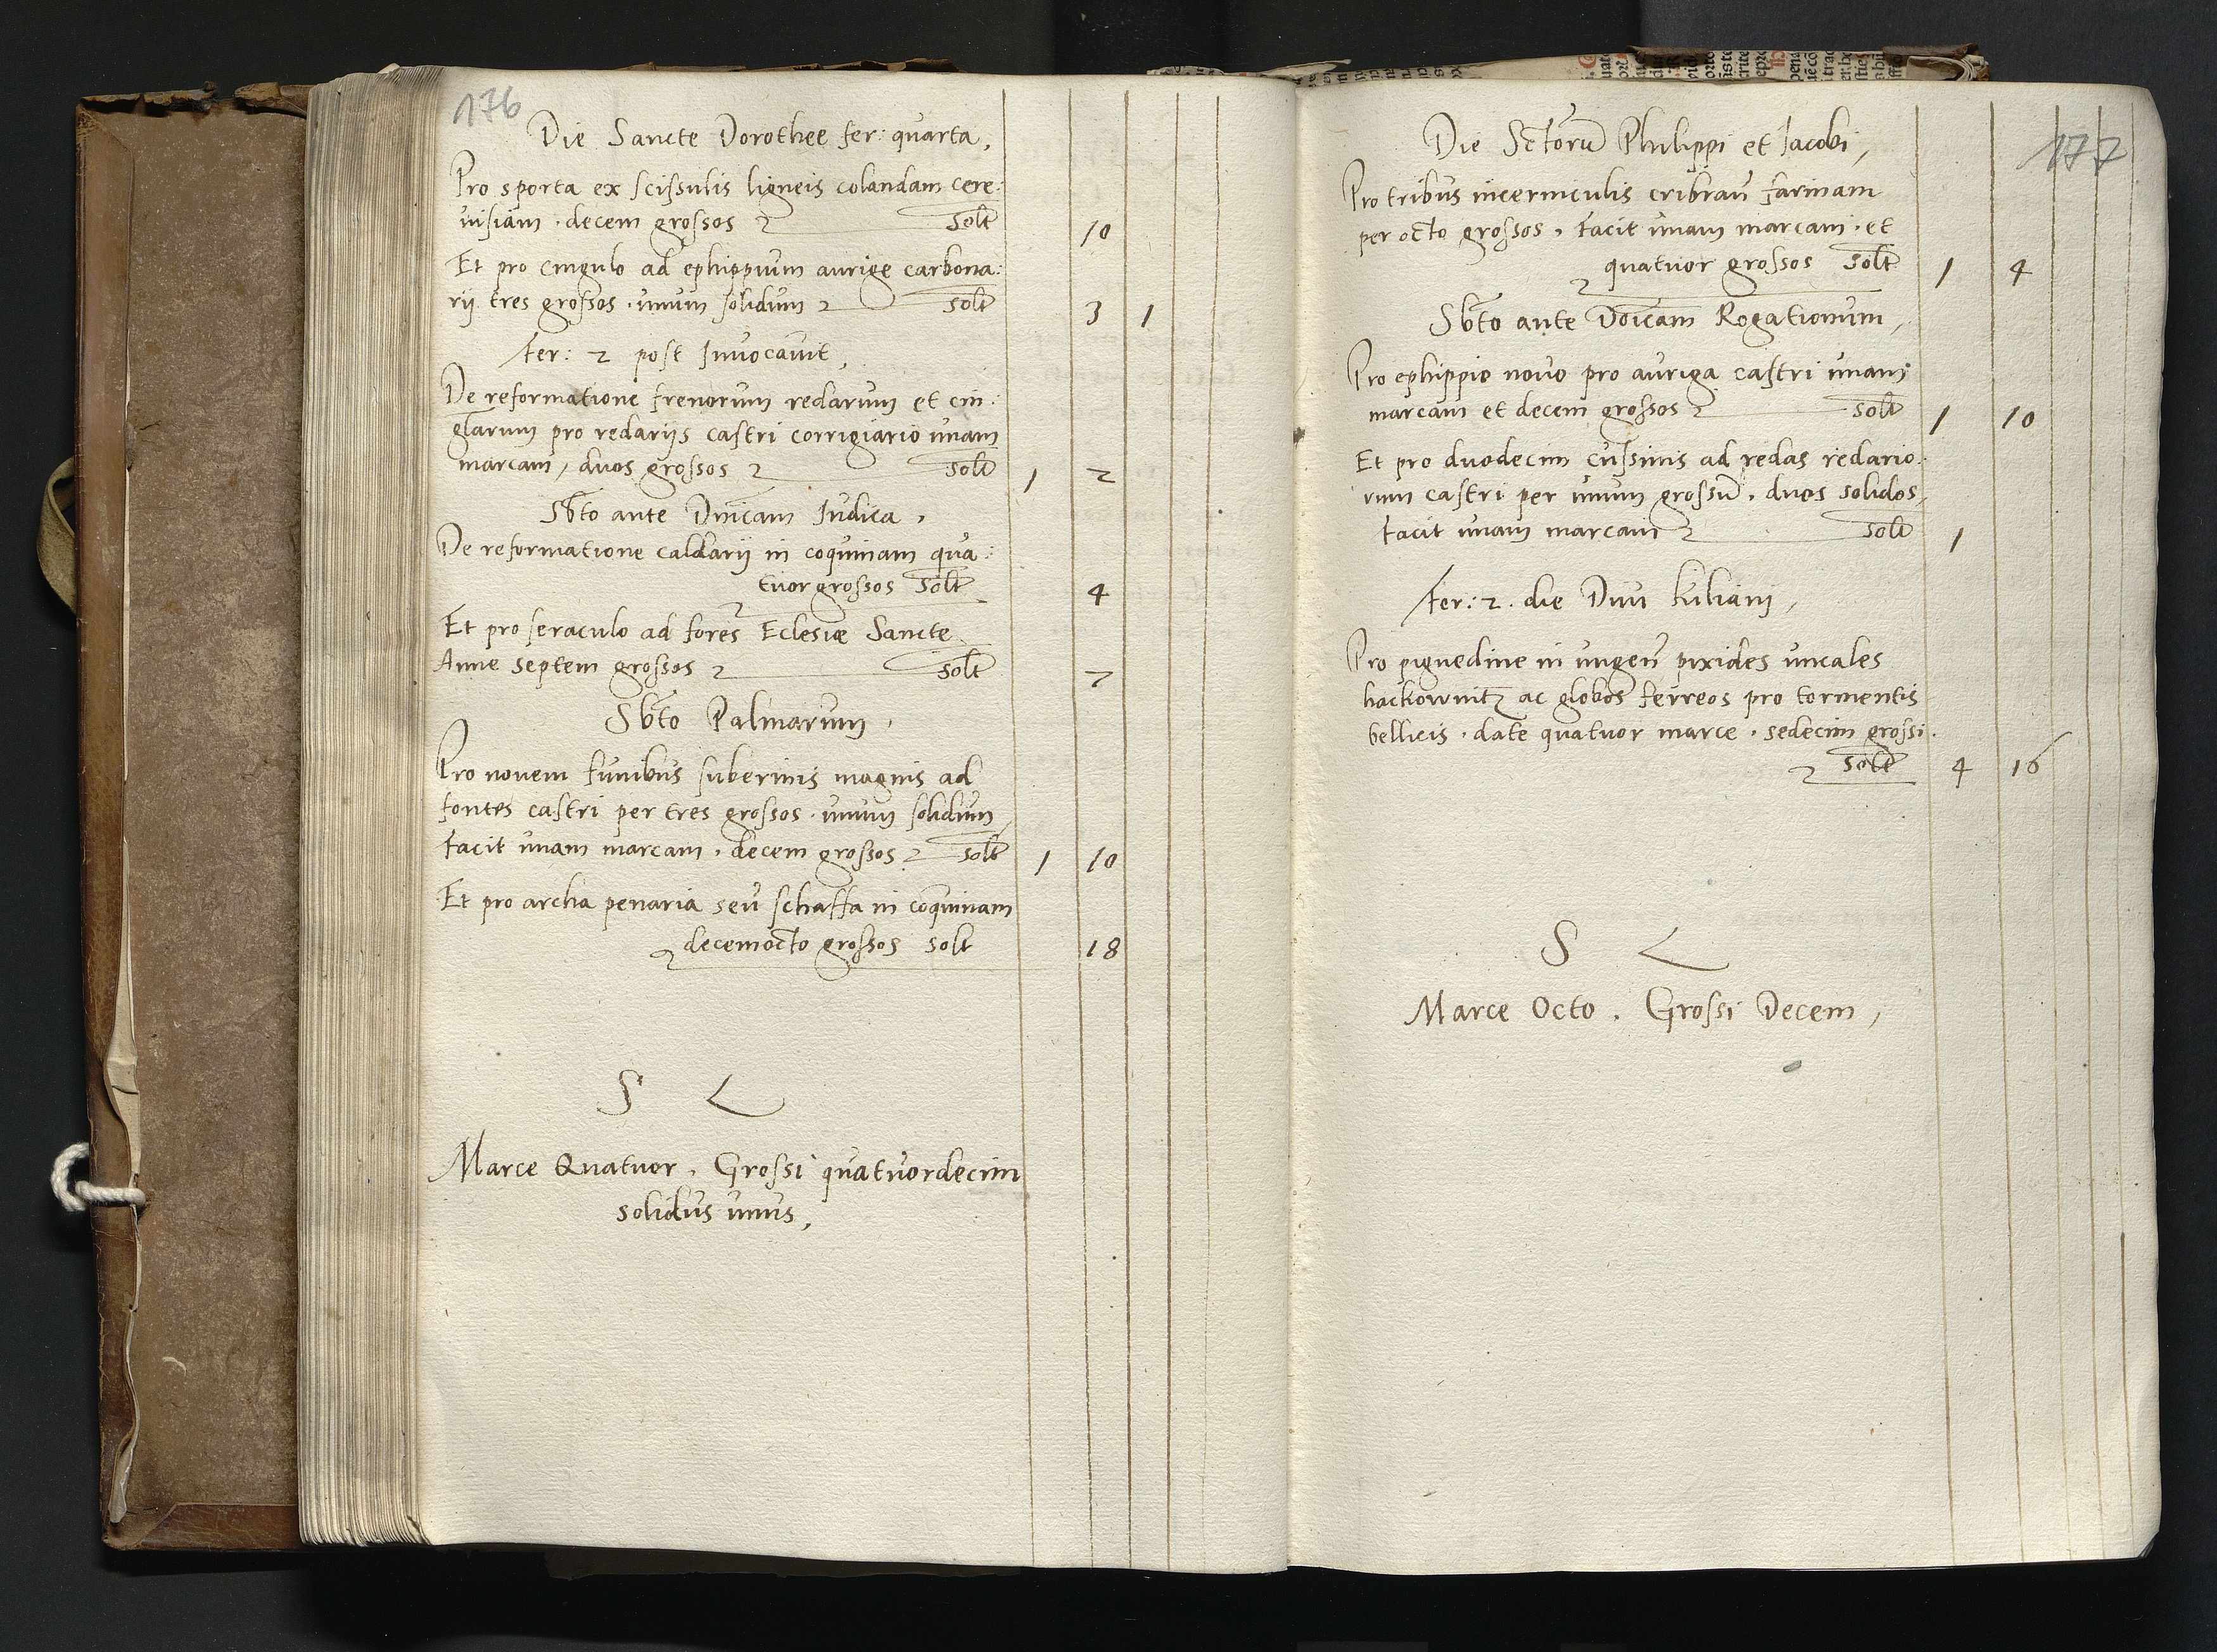 176
Die Sancte Dorothee fer: quarta,
Pro sporta ex scissulis ligneis colandam cere:
uisiam . decem grossos solt 10
Et pro cingulo ad ephippium aurige carbona:
rij tres grossos . unum solidum solt 3 1
fer: 2 post Inuocauit,
De reformatione frenorum redarum et cin:
glarum pro redarijs castri corrigiario unam
marcam, duos grossos solt 1 2
Sbto ante Dnicam Iudica,
De reformatione caldarij in coquinam qua:
tuor grossos solt 4
Et pro seraculo ad fores Eclesiæ Sancte
Anne septem grossos solt 7
Sbto Palmarum,
Pro nouem funibus suberinis magnis ad
fontes castri per tres grossos . unum solidum,
facit unam marcam, decem grossos solt 1 10
Et pro archa penaria seu schaffa in coquinam
decemocto grossos solt 18
S
Marce Quatuor, Grossi quatuordecim
solidus unus,
177
Die Sctorū Philippi et Iacobi,
Pro tribus incerniculis cribrañ farinam
per octo grossos, facit unam marcam . et
quatuor grossos solt 1 4
Sbto ante Doicam Rogationum,
Pro ephippio nouo pro auriga castri unam
marcam et decem grossos solt 1 10
Et pro duodecim cussinis ad redas redario:
rum castri per unum grossū, duos solidos,
facit unam marcam solt 1
fer: 2. die Diui Kiliani,
Pro pignedine in ungeñ pixides uncales
hackownitz ac globos ferreos pro tormentis
bellicis . date quatuor marce . sedecim grossi .
solt 4 16
S
Marce Octo, Grossi Decem,